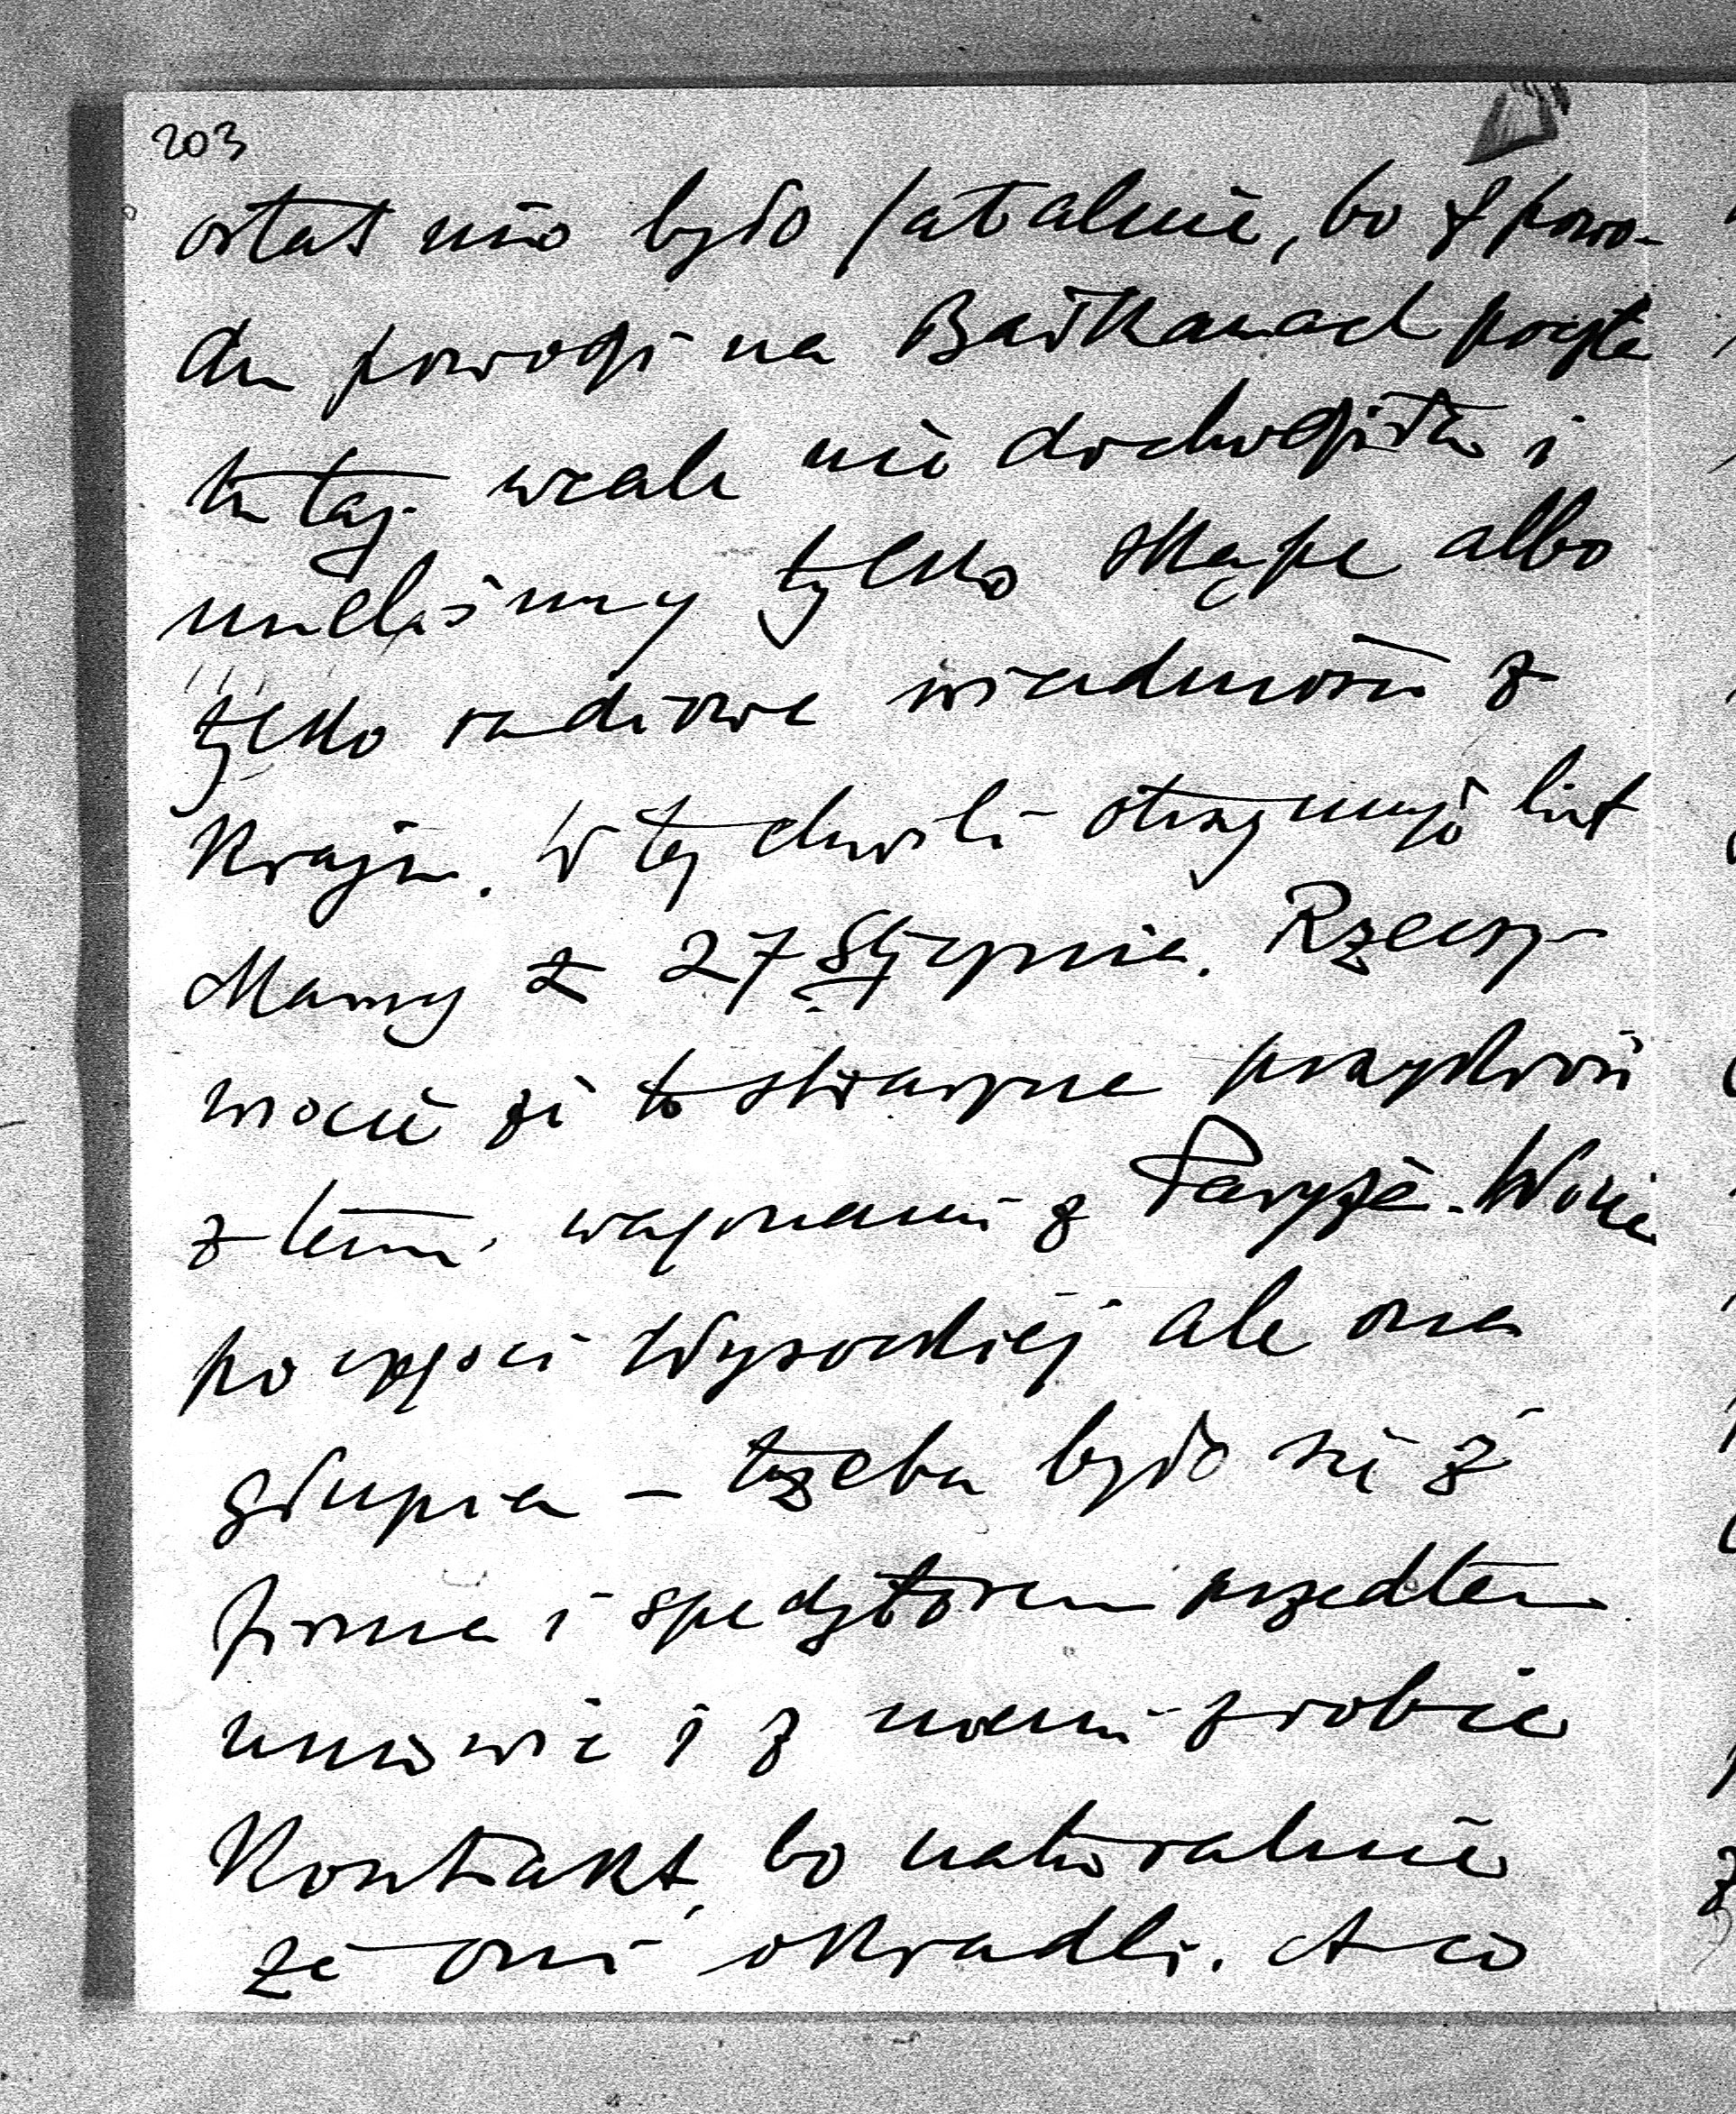 203
ostatnio było fatalnie, bo z powo-
du powodzi na Bałkanach poczta
tutaj wcale nie dochodziła i
mieliśmy tylko skąpe albo
tylko radiowe wiadomości z
Kraju. W tej chwili otrzymuję list
Mamy z 27 Stycznia. Rzeczy-
wiście że to straszne przykrości
z temi wagonami z Paryża. Wina
po części Wysockiej ale ona
głupia – trzeba było się z
firmą i spedytorem przedtem
umówić i z niemi zrobić
Kontrakt, bo naturalnie
że oni okradli. A co